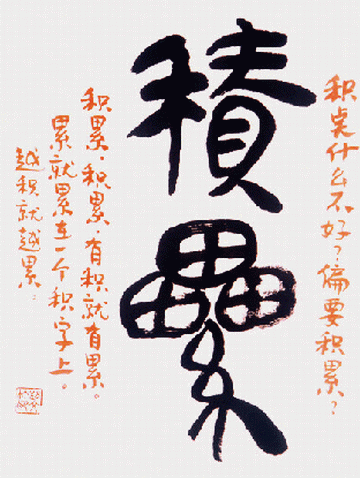 积点什么不好？偏要积累？
積纍
积累，积累，有积就有累。
累就累在一个积字上。
越积就越累。